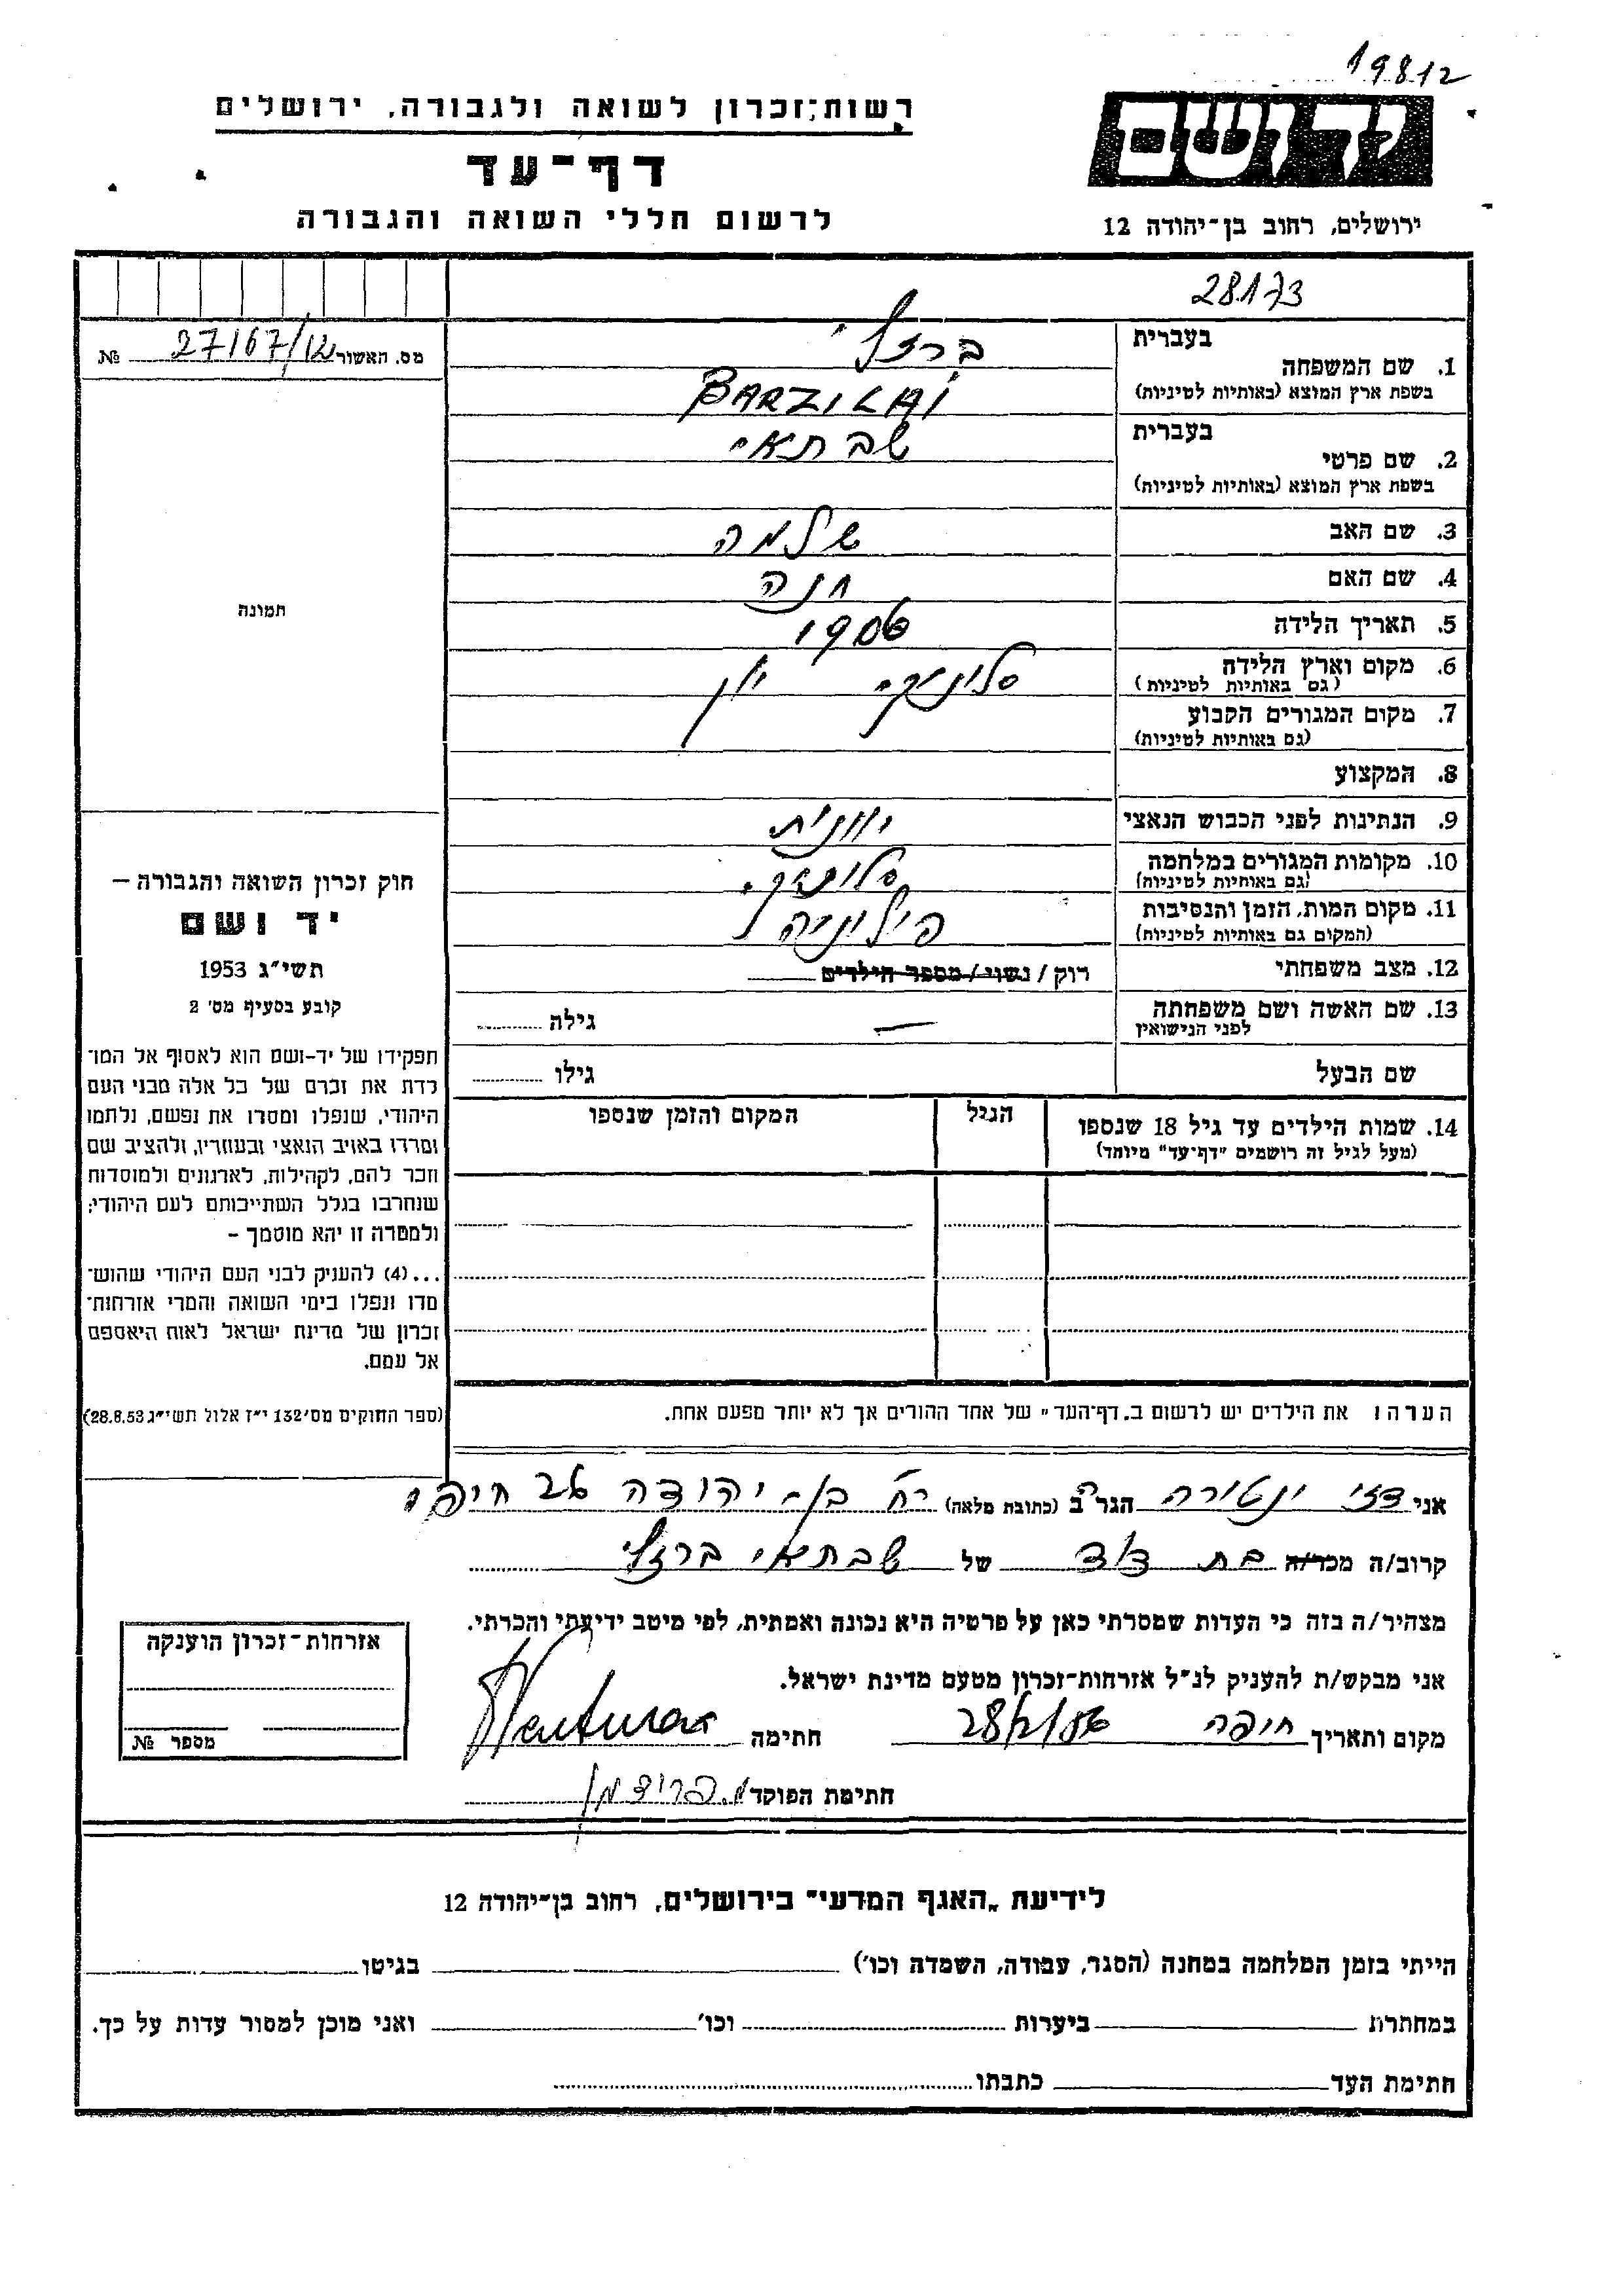 19812
רשות זכרון לשואה ולגבורה, ירושלים
דף-עד
לרשום חללי השואה והגבורה
יד ושם
ירושלים, רחוב בן-יהודה 12
28173
מס. האשור 27167/12 №
תמונה
1. שם המשפחה
בעברית ברזלי
בשפת ארץ המוצא (באותיות לטיניות) BARZILAI
2. שם פרטי
בעברית שבתאי
בשפת ארץ המוצא (באותיות לטיניות)
3. שם האב שלמה
4. שם האם חנה
5. תאריך הלידה 1906
6. מקום וארץ הלידה סלוניקי יון
(גם באותיות לטיניות)
7. מקום המגורים הקבוע
(גם באותיות לטיניות)
8. המקצוע
9. הנתינות לפני הכבוש הנאצי יוונית
10. מקומות המגורים במלחמה סלוניקי
(גם באותיות לטיניות)
11. מקום המות, הזמן והנסיבות פילוניה
(המקום גם באותיות לטיניות)
12. מצב משפחתי רוק / נשוי / מספר הילדים
13. שם האשה ושם משפחתה — גילה
לפני הנישואין
שם הבעל גילו
14. שמות הילדים עד גיל 18 שנספו הגיל המקום והזמן שנספו
(מעל לגיל זה רושמים "דף-עד" מיוחד)
הערה: את הילדים יש לרשום ב"דף-העד" של אחד ההורים אך לא יותר מפעם אחת.
חוק זכרון השואה והגבורה –
יד ושם
תשי"ג 1953
קובע בסעיף מס' 2
תפקידו של יד-ושם הוא לאסוף אל המו־
לדת את זכרם של כל אלה מבני העם
היהודי, שנפלו ומסרו את נפשם, נלחמו
ומרדו באויב הנאצי ובעוזריו, ולהציב שם
וזכר להם, לקהילות, לארגונים ולמוסדות
שנחרבו בגלל השתייכותם לעם היהודי;
ולמטרה זו יהא מוסמך –
...(4) להעניק לבני העם היהודי שהוש־
מדו ונפלו בימי השואה והמרי אזרחות־
זכרון של מדינת ישראל לאות היאספם
אל עמם.
(ספר החוקים מס' 132 י"ז אלול תשי"ג 28.8.53)
אני דזי ונטורה הגר/ה ב (כתובת מלאה) רח' בן-יהודה 26 חיפה
קרוב/ה מכר/ה בת דוד של שבתאי ברזלי
מצהיר/ה בזה כי העדות שמסרתי כאן על פרטיה היא נכונה ואמתית, לפי מיטב ידיעתי והכרתי.
אני מבקש/ת להעניק לנ"ל אזרחות-זכרון מטעם מדינת ישראל.
מקום ותאריך חיפה 28/2/56 חתימה Ventura
חתימת הפוקד מ. פרידמן
אזרחות-זכרון הוענקה
מספר №
לידיעת "האגף המדעי" בירושלים, רחוב בן-יהודה 12
הייתי בזמן המלחמה במחנה (הסגר, עבודה, השמדה וכו') בגיטו
במחתרת ביערות וכו' ואני מוכן למסור עדות על כך.
חתימת העד כתבתו